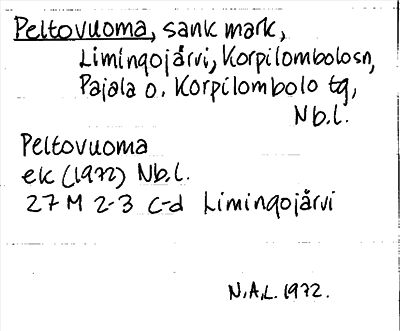 Peltovuoma, sank mark,
Limingojärvi, Korpilombolosn,
Pajala o. Korpilombolo tg,
Nb.l.
Peltovuoma
ek (1972) Nb.l.
27 M 2-3 c-d Limingojärvi
N.A.L. 1972.